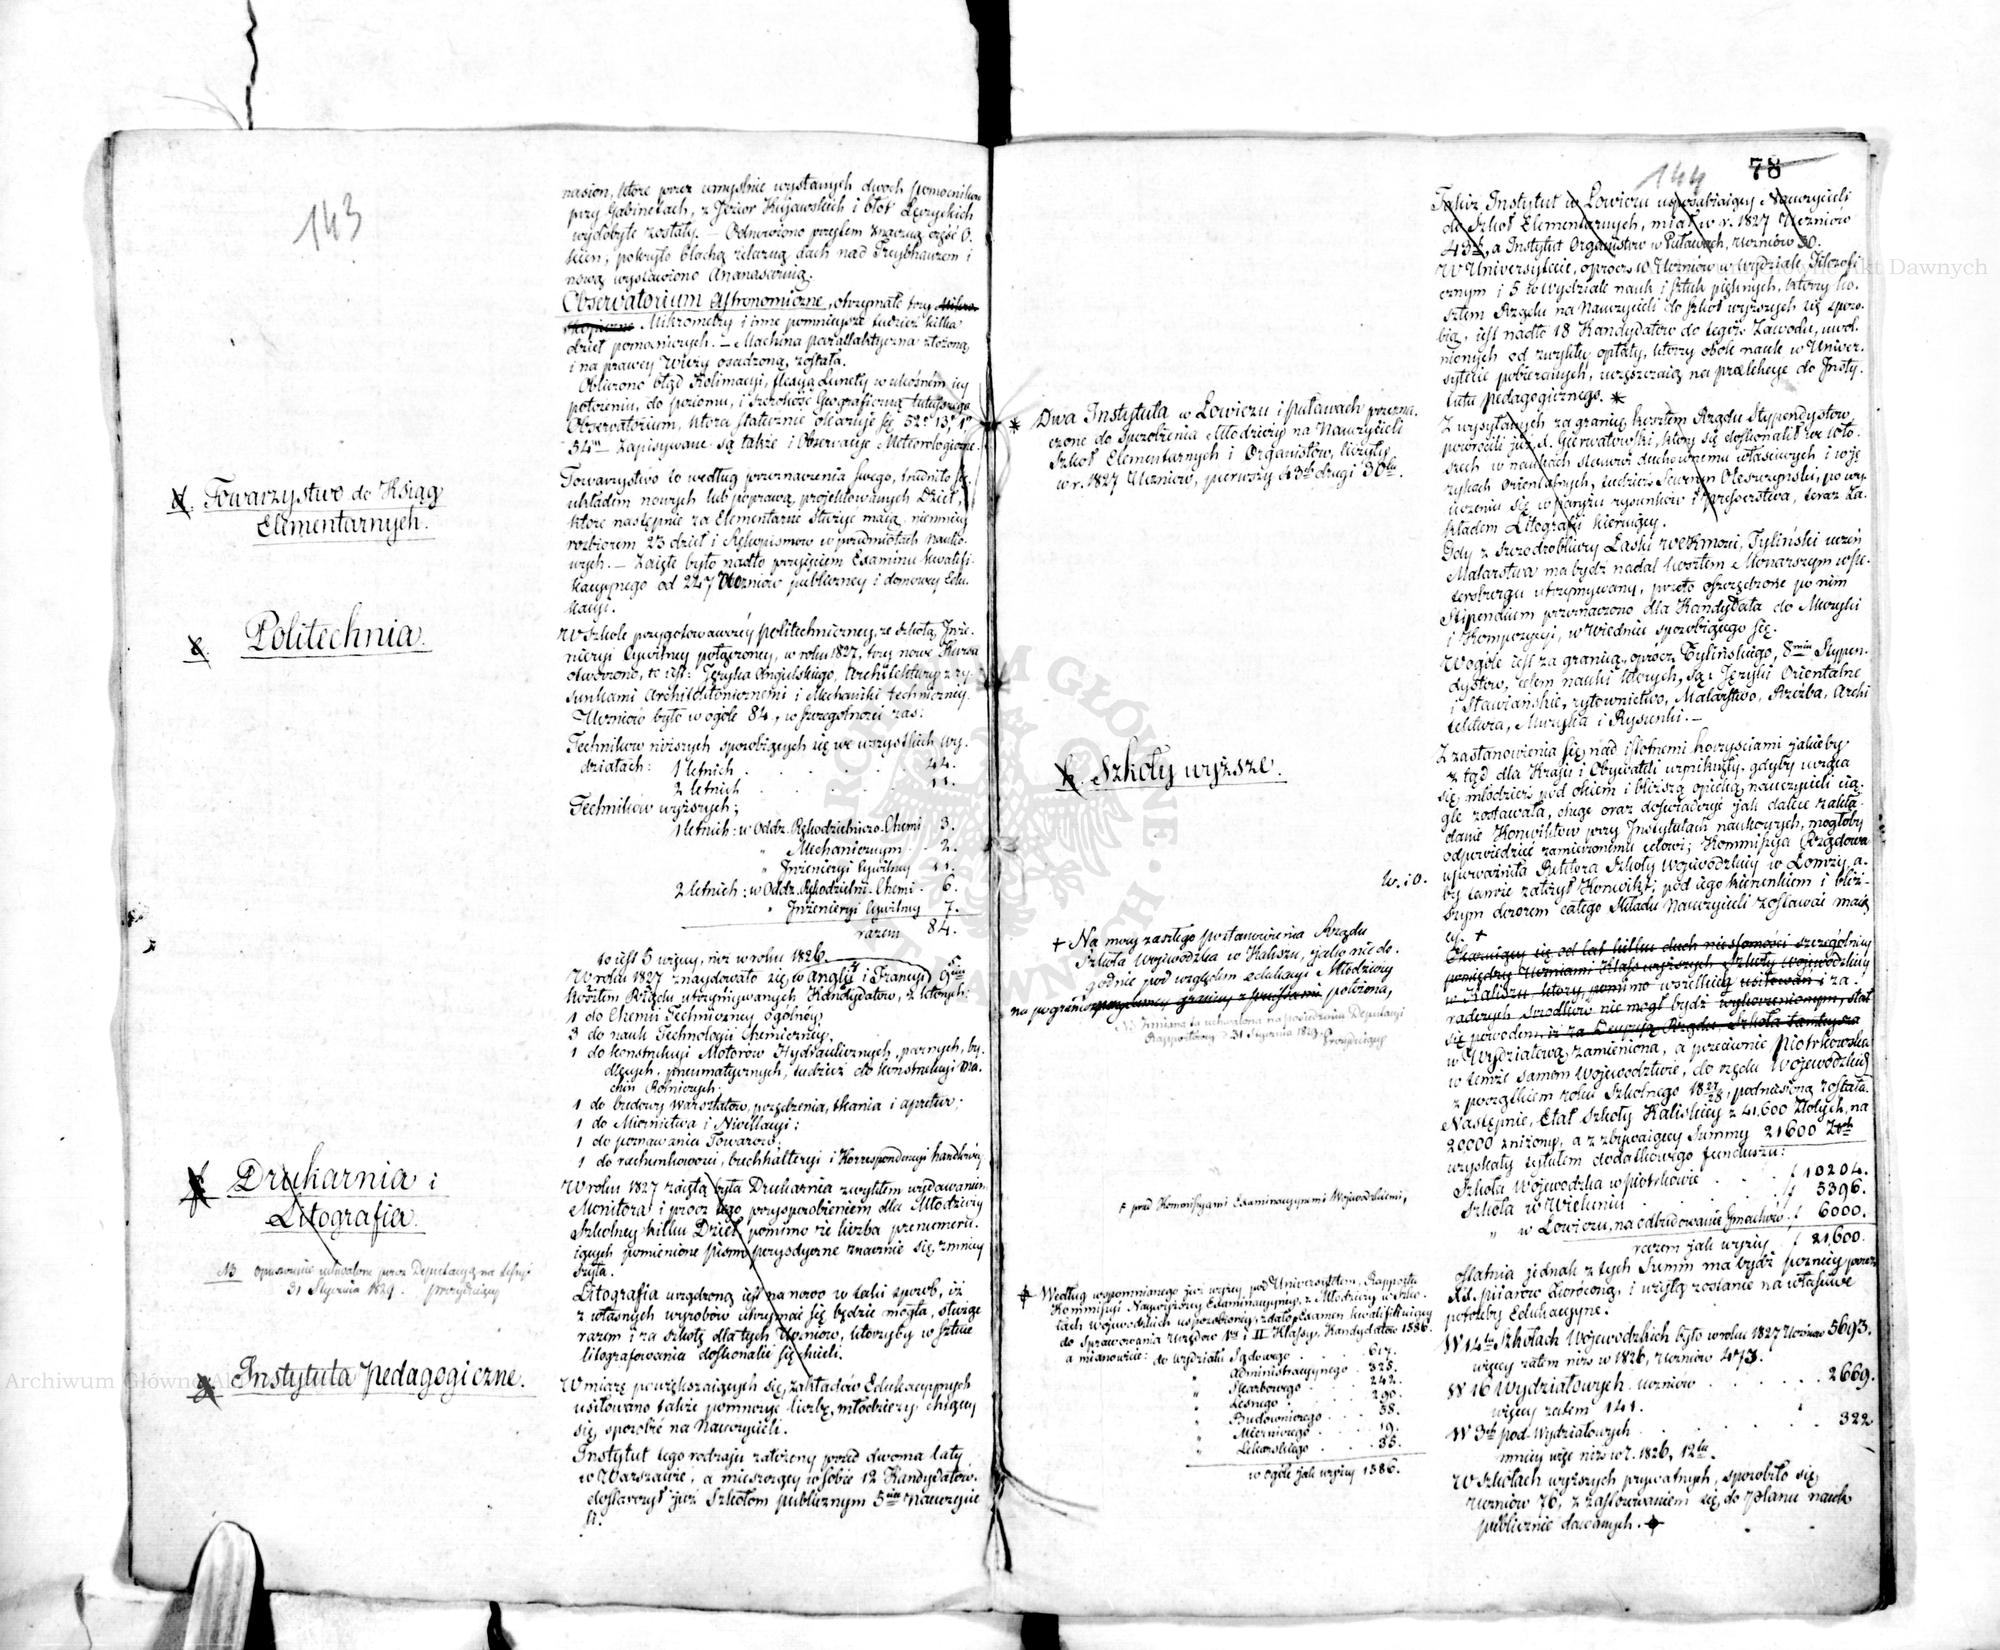 143
nasion, które przez umyślnie wysłanych dwoch pomocników
przy Gabinetach, z Jezior Kujawskich i błot Łęczyckich
wydobyte zostały. — Odnowiono przytem znaczną część O.
kien, pokryto blachą żelazną dach nad Treybhauzem i
nową wystawiono Ananasarnią.
Observatorium Astronomiczne, otrzymało trzy Mikro-
skopiczne Mikrometry i inne pomnieysze tudzież kilka
dzieł pomocniczych. — Machina parallaktyczna złożoną
i na prawey Wieży osadzoną, została.
Obliczono błąd Kolimacyi, flexyą Lunety w ukośném iey
położeniu, do poziomu, i szerokość Geograficzną tuteyszego
Observatorium, która statecznie okazuje się 52° 13, 1"
54''' Zapisywane są także i Observacye Meteorologiczne.
d. Towarzystwo do Ksiąg
Elementarnych.
Towarzystwo to według przeznaczenia swego, trudniło się
układem nowych lub poprawą, projektowanych Dzieł,
które następnie za Elementarne służyć maią niemniey
rozbiorem 23 dzieł i Rękopismow w przedmiotach nauko-
wych. — Zaięte było nadto przyięciem Examinu kwalifi-
kacyynego od 247 Uczniów publiczney i domowey Edu-
kacyi.
e. Politechnia.
W Szkole przygotowawczéy politechniczney, ze szkołą Inże-
nieryi Cywilney połączoney, w roku 1827, trzy nowe Kursa
otworzono, to iest: Języka Angielskiego, Architektury z ry-
sunkami Architektonicznemi i Mechaniki techniczney.
Uczniów było w ogóle 84, w szczególności zas:
Techników niższych sposobiących się we wszystkich wy-
działach: 1 letnich . . . . . 44.
2 letnich . . . . . 11.
Techników wyższych;
1 letnich: w Oddz. Rękodzielniczo-Chemi 3.
" Mechanicznym . . 2.
" Inżenieryi Cywilney 11.
2 letnich: w Oddz. Rękodzielni. Chemi. 6.
" Inżenieryi Cywilney 7.
razem 84.
to iest 5 więcey, niż w roku 1826.
W roku 1827 znaydowało się, w Anglii i Francyi 9ciu
kosztem Rządu utrzymywanych Kandydatów, z których:
1 do Chemii Techniczney ogólney,
3 do nauk Technologii Chemiczney,
1 do konstrukcyi Motorów Hydraulicznych, parnych, by-
dlęcych, pneumatycznych, tudzież do konstrukcyi Ma-
chin Rolniczych.
1 do budowy warsztatów, przędzenia, tkania i apretur;
1 do Miernictwa i Niwellacyi;
1 do poznawania Towarów;
1 do rachunkowości, buchhalteryi i Korrespondencyi handlowey.
f. Drukarnia i
Litografia.
NB opuszczenie uchwalone przez Deputacyą na Sessyi
31 Stycznia 1829. prezydujący
W roku 1827 zaięta była Drukarnia zwykłem wydawaniem
Monitora i procz tego przysposobieniem dla Młodzieży
Szkolney kilku Dzieł pomimo że liczba prenumeru-
iących pomienione pismo peryodyczne znacznie się, zmniey
szyła.
Litografia urządzoną iest na nowo w taki sposob, iż
z własnych wyrobów utrzymać się będzie mogła, służąc
razem i za szkołę dla tych Uczniów, którzyby w sztuce
litografowania doskonalić się chcieli.
g. Instytuta Pedagogiczne.
W miarę powiększaiących się, zakładów Edukacyynych
usiłowano także pomnożyć liczbę, młodzieży chcącey
się, sposobić na Nauczycieli.
Instytut tego rodzaju założony przed dwoma laty
w Warszawie, a mieszczący w sobie 12 Kandydatów
dostarczył już Szkołom publicznym 5ciu Nauczycie
li.
78
144
Dwa Instytuta w Łowiczu i Puławach przezna-
czone do sposobienia Młodzieży na Nauczycieli
Szkół Elementarnych i Organistów, liczyły
w r. 1827 Uczniów, pierwszy 43ch drugi 30tu.
h. Szkoły wyższe.
w. i O.
+ Na mocy zaszłego postanowienia Rządu
Szkoła Wojewódzka w Kaliszu, jako niedo-
godnie pod względem edukacyi Młodzieży
na pograniczu położona,
NB Zmiana ta uchwalona na posiedzeniu Deputacyi
Rapportowey d. 31 Stycznia 1829. Prezydujący
F przed Kommissyami Examinacyynemi Wojewódzkiemi,
Według wspomnianego już wyżey pod Uniwersytetem, Rapportu
Kommissyi Naywyższey Examinacyyney, z Młodzieży w Szko-
łach Wojewódzkich usposobioney, zdało Examen kwalifikuiący
do sprawowania Urzędów Iéy i II Klassy, Kandydatów 1586.
a mianowicie: do wydziału Sądowego . . . 617.
" Administracyynego . 325.
" Skarbowego . . . 242.
" Leśnego . . . 290.
" Budowniczego . . . 38.
" Mierniczego . . . 19.
" Lekarskiego . . . 55.
w ogóle jak wyżey 1586.
Takiż Instytut w Łowiczu usposabiaiący Nauczycieli
do Szkół Elementarnych, miał w r. 1827 Uczniów
43ch, a Instytut Organistow w Puławach, Uczniów 30.
W Uniwersytecie, oprocz 10 Uczniów w Wydziale Filozofi
cznym i 5 w Wydziale nauk i sztuk pięknych, którzy ko-
sztem Rządu na Nauczycieli do szkół wyższych się sposo-
bią, iest nadto 18 Kandydatów do tegoż Zawodu, uwol-
nionych od zwykłey opłaty, którzy obok nauk w Uniwer-
sytecie pobieranych, uczęszczaią na prelekcye do Insty-
tutu pedagogicznego. *
Z wysyłanych za granicę kosztem Rządu Stypendystow
powrócili już X. Gierwatowski, który się doskonalił we Wło-
szech w naukach stanowi duchownemu właściwych i w ję-
zykach Orientalnych, tudzież Seweryn Oleszczyński, po wy-
uczeniu się w Paryżu rysunków i presserstwa, teraz Za-
kładem Litografii kieruiący.
Gdy z szczodrobliwey Łaski Wekmozi, Tyliński uczeń
Malarstwa ma bydź nadal kosztem Monarszym w Pe-
tersburgu utrzymywany, przeto oszczędzone po nim
Stipendium przeznaczono dla Kandydata do Muzyki
i Kompozycyi, w Wiedniu sposobiącego się.
W ogóle iest za granicą, oprócz Tylińskiego, 8miu Stypen-
dystow, celem nauki których, są: Języki Orientalne
i Sławiańskie, rytownictwo, Malarstwo, Rzeźba, Archi
tektura, Muzyka i Rysunki. —
Z zastanowienia się, nad istotnemi korzyściami jakieby
z tąd dla Kraju i Obywateli wyniknęły, gdyby ucząca
się, młodzież pod okiem i bliższą opieką nauczycieli cią-
gle zostawała, chcąc oraz doświadczyć jak dalece zakła-
danie Konwiktów przy Instytutach naukowych, mogłoby
odpowiedzieć zamierzonemu celowi; Kommissya Rządowa
upoważniła Rektora Szkoły Wojewódzkiey w Łomży, a-
by tamże założył Konwikt, pod jego kierunkiem i bliż-
szym dozorem całego składu Nauczycieli zostawać maią
cy. +
Okazujący się od lat kilku duch niesforności szczególniey
pomiędzy Uczniami Klass wyższych Szkoły Wojewódzkiey
w Kaliszu, który, pomimo wszelkich usiłowań i za-
radczych środków nie mogł bydź wykorzenionym, stał
się powodem, iż za Decyzyą Rządu, Szkoła tamteysza
w Wydziałową zamieniona, a przeciwnie Piotrkowska
w temże samem Województwie, do rzędu Wojewódzkich
z początkiem roku Szkolnego 1827/28, podniesioną została.
Następnie, Etat Szkoły Kaliskiey z 41,600 złotych, na
20,000 zniżono, a z zbywaiącey Summy 21600 Złch
wyzskały tytułem dodatkowego funduszu:
Szkoła Wojewódzka w Piotrkowie . . . f 10204.
Szkoła w Wieluniu . . . f 5396.
" w Łowiczu, na odbudowanie Gmachów f 6000.
razem jak wyżey f 21,600.
Ostatnia jednak z tych Summ ma bydź poźniey przez
XX. Piiarów zwróconą, i użytą zostanie na właściwe
potrzeby Edukacyyne.
W 14tu Szkołach Wojewódzkich było w roku 1827 Uczniów 5693.
więcey zatem niż w 1826, Uczniów 473.
W 16 Wydziałowych uczniów . . . . 2669.
więcey zatem 141.
W 3ch pod-Wydziałowych . . . . 322
mniey więc niż w r. 1826, 12tu.
W Szkołach wyższych prywatnych, sposobiło się
Uczniów 76, z zastosowaniem się do Planu nauk
publicznie dawanych.
Archiwum Główne Akt Dawnych